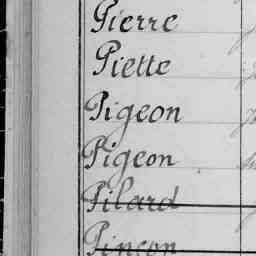 Pierre
Piette
Pigeon
Pigeon
Pilard
Pinçon